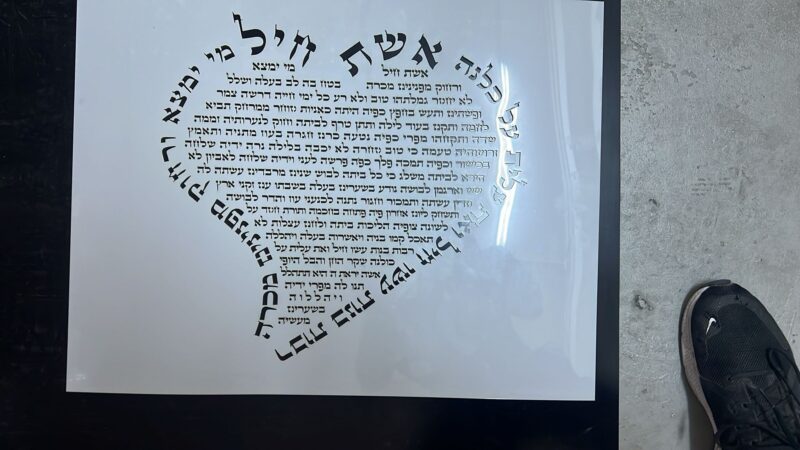 אשת חיל מי ימצא ורחוק מפנינים מכרה
רבות בנות עשו חיל ואת עלית על כלנה
אשת חיל מי ימצא
ורחוק מפנינים מכרה בטח בה לב בעלה ושלל
לא יחסר גמלתהו טוב ולא רע כל ימי חייה דרשה צמר
ופשתים ותעש בחפץ כפיה היתה כאניות סוחר ממרחק תביא
לחמה ותקם בעוד לילה ותתן טרף לביתה וחוק לנערותיה זממה
שדה ותקחהו מפרי כפיה נטעה כרם חגרה בעוז מתניה ותאמץ
זרועותיה טעמה כי טוב סחרה לא יכבה בלילה נרה ידיה שלחה
בכישור וכפיה תמכה פלך כפה פרשה לעני וידיה שלחה לאביון לא
תירא לביתה משלג כי כל ביתה לבוש שנים מרבדים עשתה לה
שש וארגמן לבושה נודע בשערים בעלה בשבתו עם זקני ארץ
סדין עשתה ותמכור וחגור נתנה לכנעני עוז והדר לבושה
ותשחק ליום אחרון פיה פתחה בחכמה ותורת חסד על
לשונה צופיה הליכות ביתה ולחם עצלות לא
תאכל קמו בניה ויאשרוה בעלה ויהללה
רבות בנות עשו חיל ואת עלית על
כולנה שקר החן והבל היופי
אשה יראת ה היא תתהלל
תנו לה מפרי ידיה
ויהללוה
בשערים
מעשיה